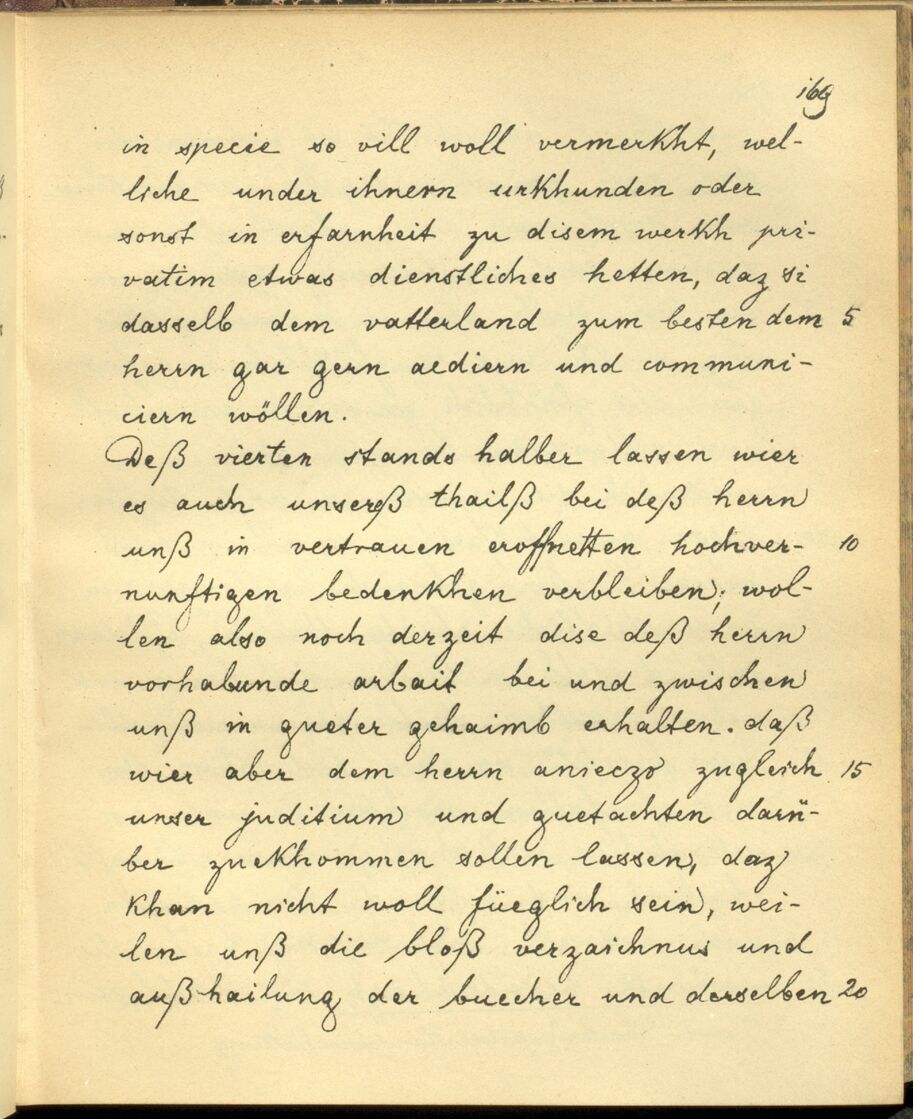 169
in specie so vill woll vermerkht, wel-
liche under ihnern urkhunden oder
sonst in erfarnheit zu disem werkh pri-
vatim etwas dienstliches hetten, daz si
dasselb dem vatterland zum besten dem 5
herrn gar gern aediern und communi-
ciern wöllen.
Deß vierten stands halber lassen wier
es auch unsereß thailß bei deß herrn
unß in vertrauen eroffnetten hochver- 10
nunftigen bedenkhen verbleiben; wol-
len also noch derzeit dise deß herrn
vorhabunde arbait bei und zwischen
unß in gueter gehaimb erhalten. daß
wier aber dem herrn anieczo zugleich 15
unser juditium und guetachten darü-
ber zuekhommen sollen lassen, daz
khan nicht woll füeglich sein, wei-
len unß die bloß verzaichnus und
außhailung der buecher und derselben 20